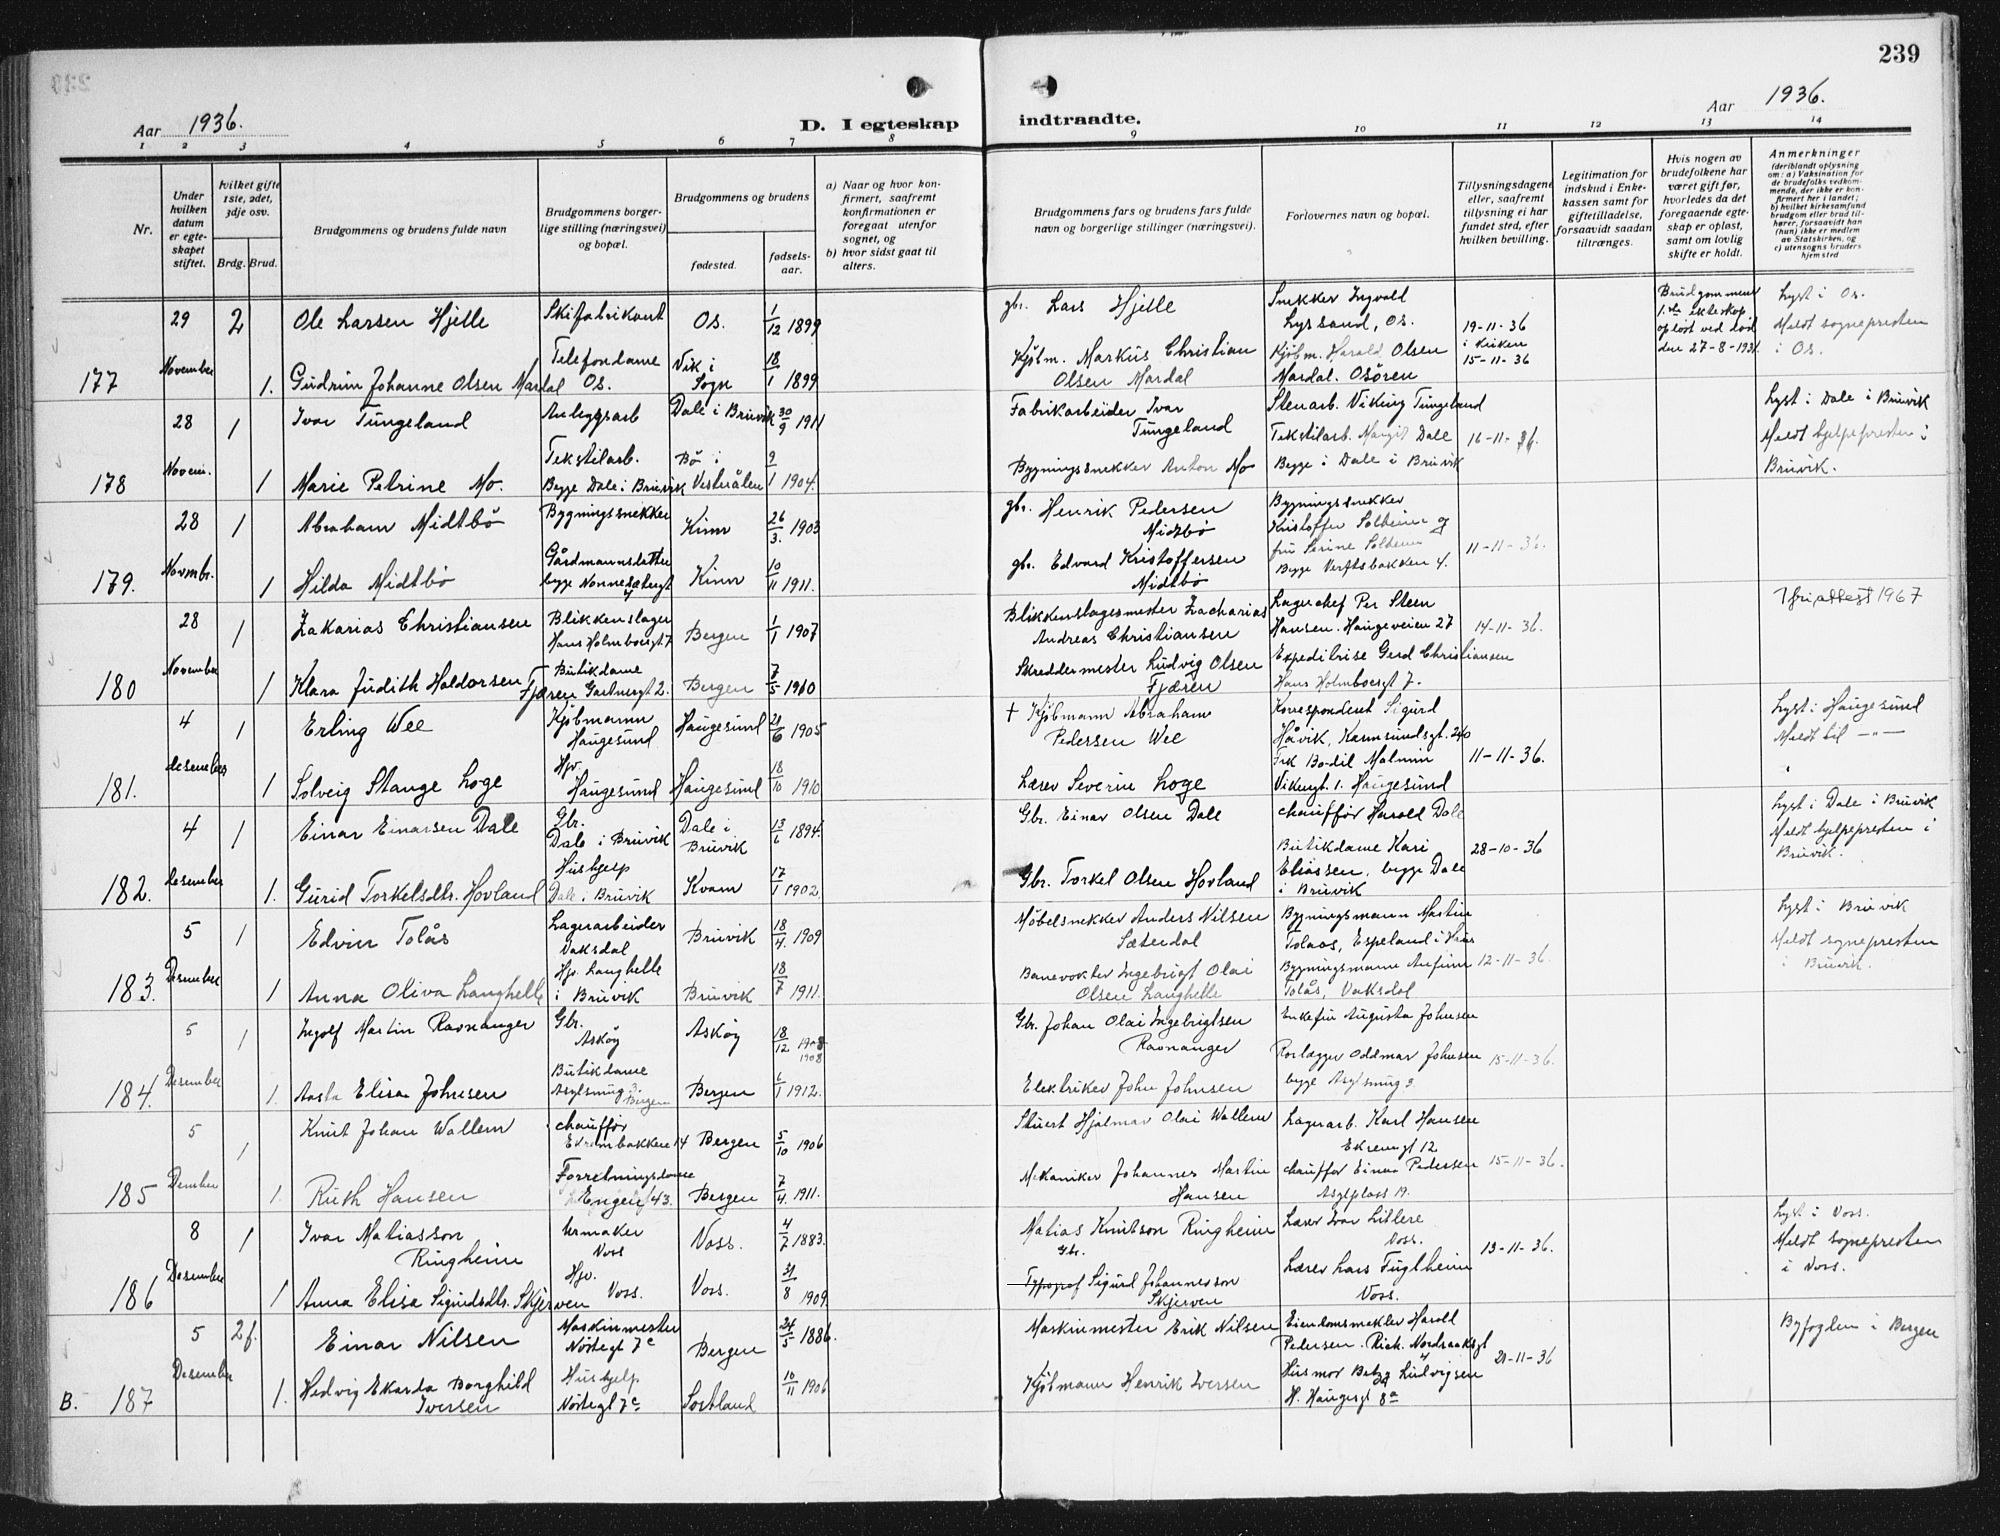 239
Aar 1936.
D. I egteskap
indtraadte.
Aar 1936.
1 2 3 4 5 6 7 8 9 10 11 12 13 14
Nr.
Under hvilken datum er egteskapet stiftet.
hvilket gifte 1ste, 2det, 3dje osv.
Brdg. Brud.
Brudgommens og brudens fulde navn
Brudgommens borgerlige stilling (næringsvei) og bopæl.
Brudgommens og brudens
fødested.
fødselsaar.
a) Naar og hvor konfirmert, saafremt konfirmationen er foregaat utenfor sognet, og
b) hvor sidst gaat til alters.
Brudgommens fars og brudens fars fulde navn og borgerlige stillinger (næringsvei).
Forlovernes navn og bopæl.
Tillysningsdagene eller, saafremt tillysning ei har fundet sted, efter hvilken bevilling.
Legitimation for indskud i Enkekassen samt for giftetilladelse, forsaavidt saadan tiltrænges.
Hvis nogen av brudefolkene har været gift før, hvorledes da det foregaaende egteskap er opløst, samt om lovlig skifte er holdt.
Anmerkninger
(deriblandt oplysning om: a) Vaksination for de brudefolks vedkommende, der ikke er konfirmert her i landet; b) hvilket kirkesamfund brudgom eller brud tilhører, forsaavidt han (hun) ikke er medlem av Statskirken, og c) utensogns bruders hjemsted
29 2 Ole Larsen Hjelle Skifabrikant Os. 1/12 1899 gbr. Lars Hjelle Snekker Ingvald Lyssand, Os. 19-11-36 i kirken Brudgommens 1.ste ekteskap opløst ved død den 27-8-1931. Lyst i Os.
177 November 1. Gudrun Johanne Olsen Mardal Telefondame Os. Vik i Sogn 18/1 1899 Kjøbm. Markus Christian Olsen Mardal Kjøbm. Harald Olsen Mardal. Osøren 15-11-36 Meldt sognepresten i Os.
28 1 Ivar Tungeland Anleggsarb Dale i Bruvik 30/9 1911 Fabrikarbeider Ivar Tungeland Stenarb. Viking Tungeland 16-11-36. Lyst i Dale i Bruvik
178 Novem. 1 Marie Petrine Mo. Tekstilarb. Begge Dale i Bruvik Bø i Vesterålen 9/1 1904. Bygningssnekker Anton Mo Tekstilarb. Margit Dale Begge i Dale i Bruvik Meldt hjelpepresten i Bruvik.
28 1 Abraham Midtbø Bygningssnekker Kinn 26/3. 1903 gbr. Henrik Pedersen Midtbø Bygningssnekker Kristoffer Solheim og 11-11-36.
179. Novmbr. 1 Hilda Midtbø Gårdmannsdatter begge Nonnesætergt 4 Kinn 10/11 1911. gbr. Edvard Kristoffersen Midtbø fru Serine Solheim Begge Verftsbakken 4.
28 1 Zakarias Christiansen Blikkenslager Hans Holmboesgt 7 Bergen 1/1 1907 Blikkenslagermester Zacharias Andreas Christiansen Lagerchef Per Steen Hansen. Haugeveien 27 14-11-36. 1 fri, attest 1967
180 November 1 Klara Judith Haldorsen Fjæren Butikdame Gartnergt 2. Bergen 7/5 1910 Skreddermester Ludvig Olsen Fjæren Expeditrise Gerd Christiansen Hans Holmboesgt 7.
4 1 Erling Wee Kjøbmann Haugesund Haugesund 21/6 1905 + Kjøbmann Abraham Pedersen Wee Korrespondent Sigurd Håvik, Karmsundsgt. 240 11-11-36. Lyst i Haugesund
181. desember 1 Solveig Stange Loge Hjv. Haugesund Haugesund 18/10 1910 Lærer Severin Loge Frk Bodil Malmin Vikengt. 1. Haugesund Meldt til -"-
4 1 Einar Einarsen Dale Gbr. Dale i Bruvik Dale i Bruvik 13/6 1894. Gbr. Einar Olsen Dale chauffør Harald Dale 28-10-36 Lyst i Dale i Bruvik
182. desember 1. Gurid Torkelsdtr. Hovland Hushjelp Dale i Bruvik Kvam 17/1 1902. Gbr. Torkel Olsen Hovland Butikdame Kari Eliassen, begge Dale i Bruvik Meldt hjelpepresten i Bruvik.
5 1 Edvin Tolås Lagerarbeider Vaksdal Bruvik 18/4. 1909 Møbelsnekker Anders Nilsen Sæterdal Bygningsmann Martin Tolaas, Espeland i Haus 12-11-36. Lyst i Bruvik
183. Desember 1 Anna Oliva Langhelle Hjv. Langhelle i Bruvik Bruvik 18/7 1911. Banevokter Ingebrigt Olai Olsen Langhelle Bygningsmann Anfinn Tolås, Vaksdal Meldt sognepresten i Bruvik.
5 1 Ingolf Martin Ravnanger Gbr. Askøy Askøy 18/12 1908 1908 Gbr. Johan Olai Ingebrigtsen Ravnanger Enkefru Augusta Johnsen 15-11-36.
184. Desember 1. Aasta Elisa Johnsen Butikdame Asylsmug 3. Bergen Bergen 6/1 1912. Elektriker John Johnsen Rørlegger Oddmar Johnsen begge Asylsmug 3
5 1 Knut Johan Wallem chauffør Ekrembakken 14 Bergen 5/10 1906 Stuert Hjalmar Olai Wallem Lagerarb. Karl Hansen Ekrengt 12 15-11-36.
185 Dember 1. Ruth Hansen Forretningsdame Engen 43. Bergen 7/4. 1911. Mekaniker Johannes Martin Hansen chauffør Einar Pedersen Asylplass 19.
8 1 Ivar Matiasson Ringheim Urmaker Voss Voss. 4/7 1883. Matias Knutson Ringheim Gbr. Lærer Ivar Lillere Voss. 13-11-36. Lyst i Voss.
186 Desember 1 Anna Elisa Sigurdsdtr. Skjerven Hjv. Voss. Voss. 31/8 1909. Typograf Sigurd Johannesson Skjerven Lærer Lars Fuglheim Voss. Meldt sognepresten i Voss.
5 2f. Einar Nilsen Maskinmester Nøstegt 7c Bergen 24/5 1886. Maskinmester Erik Nilsen Eiendomsmekler Harald Pedersen. Rich. Nordraaksgt 4 21-11-36 Byfogden i Bergen
B. 187 Desember 1. Hedvig Ekarda Borghild Iversen Hushjelp Nøstegt 7c Sortland 10/11 1906 Kjøbmann Henrik Iversen Husmor Betzy Ludvigsen H. Haugesgt 8a